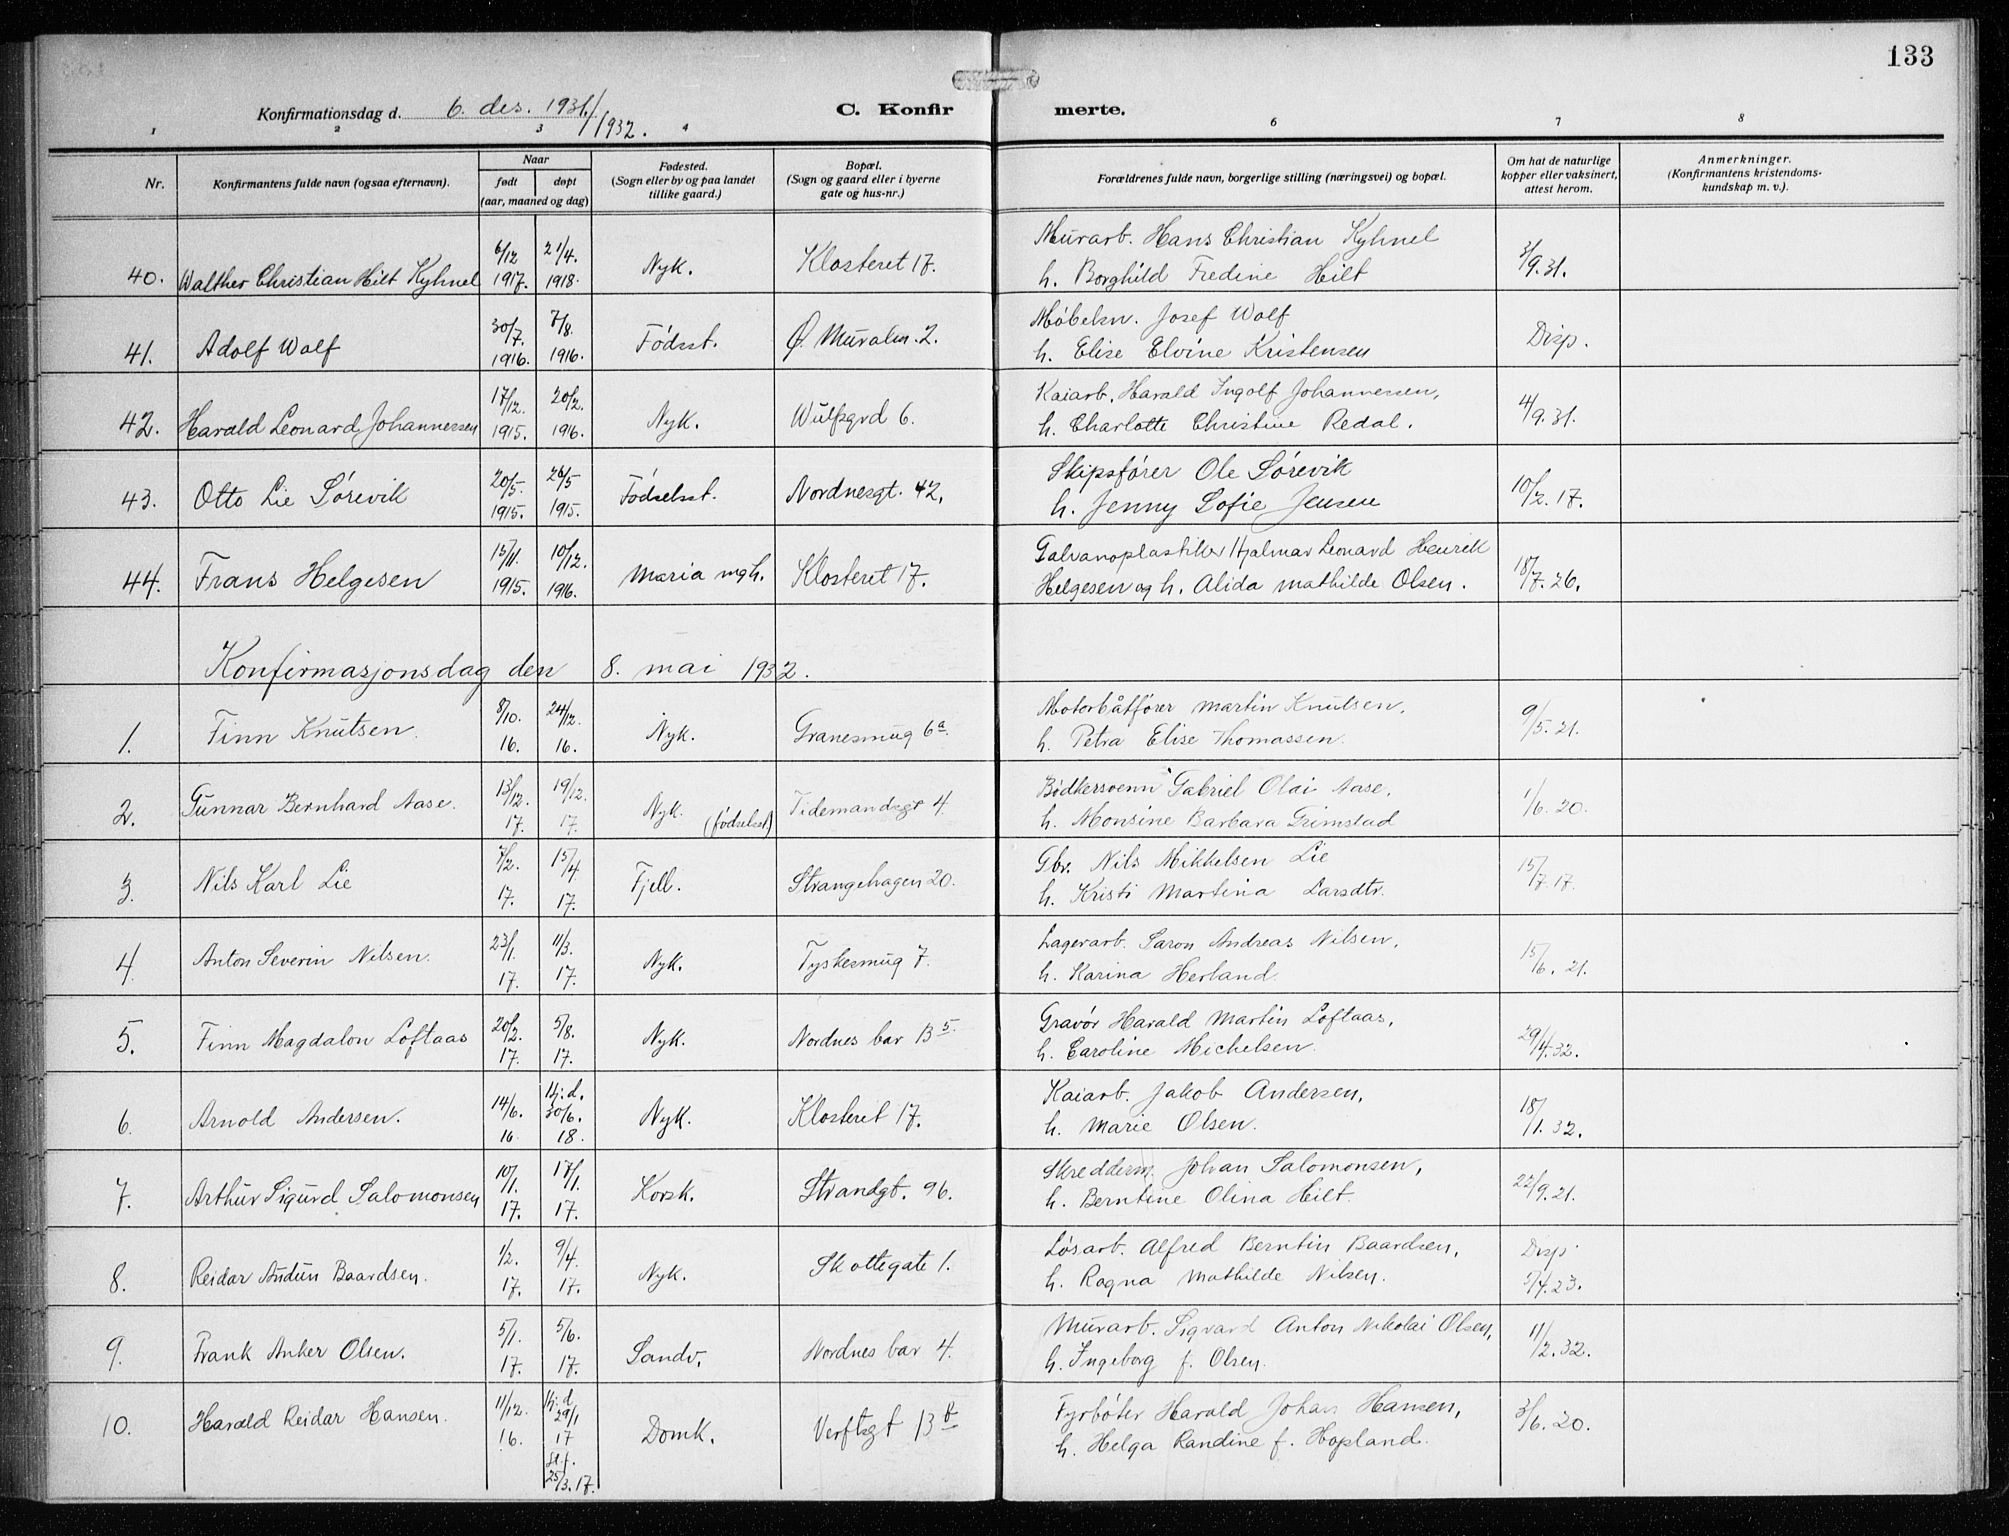 133
Konfirmationsdag d. 6. des. 1931./1932.
C. Konfirmerte.
1 2 3 4 6 7 8
Nr.
Konfirmantens fulde navn (ogsaa efternavn).
Naar
født
døpt
(aar, maaned og dag)
Fødested.
(Sogn eller by og paa landet
tillike gaard.)
Bopæl.
(Sogn og gaard eller i byerne
gate og hus-nr.)
Forældrenes fulde navn, borgerlige stilling (næringsvei) og bopæl.
Om hat de naturlige
kopper eller vaksinert,
attest herom.
Anmerkninger.
(Konfirmantens kristendoms-
kundskap m. v.).
40. Walther Christian Hilt Kyhnel 6/12 1917. 21/4. 1918. Nyk. Klosteret 17.
Murarb. Hans Christian Kyhnel
h. Borghild Fredine Hilt
3/9.31.
41. Adolf Wolf 30/7. 1916. 7/8. 1916. Fødsst. Ø. Muralm. 2.
Møbelsn. Josef Wolf
h. Elise Elvine Kristensen
Disp.
42. Harald Leonard Johannessen 17/12. 1915. 20/2. 1916. Nyk. Wulfsgrd 6.
Kaiarb. Harald Ingolf Johannessen,
h. Charlotte Christine Redal.
4/9.31.
43. Otto Lie Sørevik 20/5. 1915. 26/5 1915. Fødselsst. Nordnesgt. 42.
Skipsfører Ole Sørevik
h. Jenny Sofie Jensen
10/2.17.
44. Frans Helgesen 15/11. 1915. 10/12. 1916. Maria mgh. Klosteret 17.
Galvanoplastiker Hjalmar Leonard Henrik
Helgesen og h. Alida Mathilde Olsen.
18/7.26.
Konfirmasjonsdag den 8. mai 1932.
1. Finn Knutsen. 8/10. 16. 24/12. 16. Nyk. Granesmug 6a.
Motorbåtfører Martin Knutsen,
h. Petra Elise Thomassen.
9/5.21.
2. Gunnar Bernhard Aase. 13/12. 17. 19/12. 17. Nyk. (fødselsst) Tidemandsgt 4.
Bødkersvenn Gabriel Olai Aase,
h. Monsine Barbara Grimstad
1/6.20.
3. Nils Karl Lie 7/2. 17. 15/4 17. Fjell. Strangehagen 20.
Gbr. Nils Mikkelsen Lie
h. Kristi Martina Larsdtr.
15/7.17.
4. Anton Severin Nilsen. 23/1. 17. 11/3. 17. Nyk. Tyskesmug 7.
Lagerarb. Saron Andreas Nilsen,
h. Karina Herland.
15/6.21.
5. Finn Magdalon Loftaas 20/2. 17. 5/8. 17. Nyk. Nordnes bar B 5.
Gravør Harald Martin Loftaas,
h. Caroline Michelsen.
29/4.32.
6. Arnold Andersen. 14/6. 16. Hj: d. 30/6. 18. Nyk. Klosteret 17.
Kaiarb. Jakob Andersen,
h. Marie Olsen.
18/1.32.
7. Arthur Sigurd Salomonsen 10/1. 17. 17/1. 17. Korsk. Strandgt. 96.
Skredderm. Johan Salomonsen,
h. Berntine Olina Hilt.
22/9.21.
8. Reidar Audun Baardsen. 1/2. 17. 9/4. 17. Nyk. Skottegate 1.
Løsarb. Alfred Berntin Baardsen,
h. Ragna Mathilde Nilsen.
Disp.
5/4.23.
9. Frank Anker Olsen. 5/1. 17. 5/6. 17. Sandv. Nordnes bar 4.
Murarb. Sigvard Anton Nikolai Olsen,
h. Ingeborg f. Olsen.
11/2.32.
10. Harald Reidar Hansen. 11/12. 16. Hj: d 29/1 17 st. f. 25/3.17. Domk. Verftsgt 13b
Fyrbøter Harald Johan Hansen,
h. Helga Randine f. Hopland.
3/6.20.